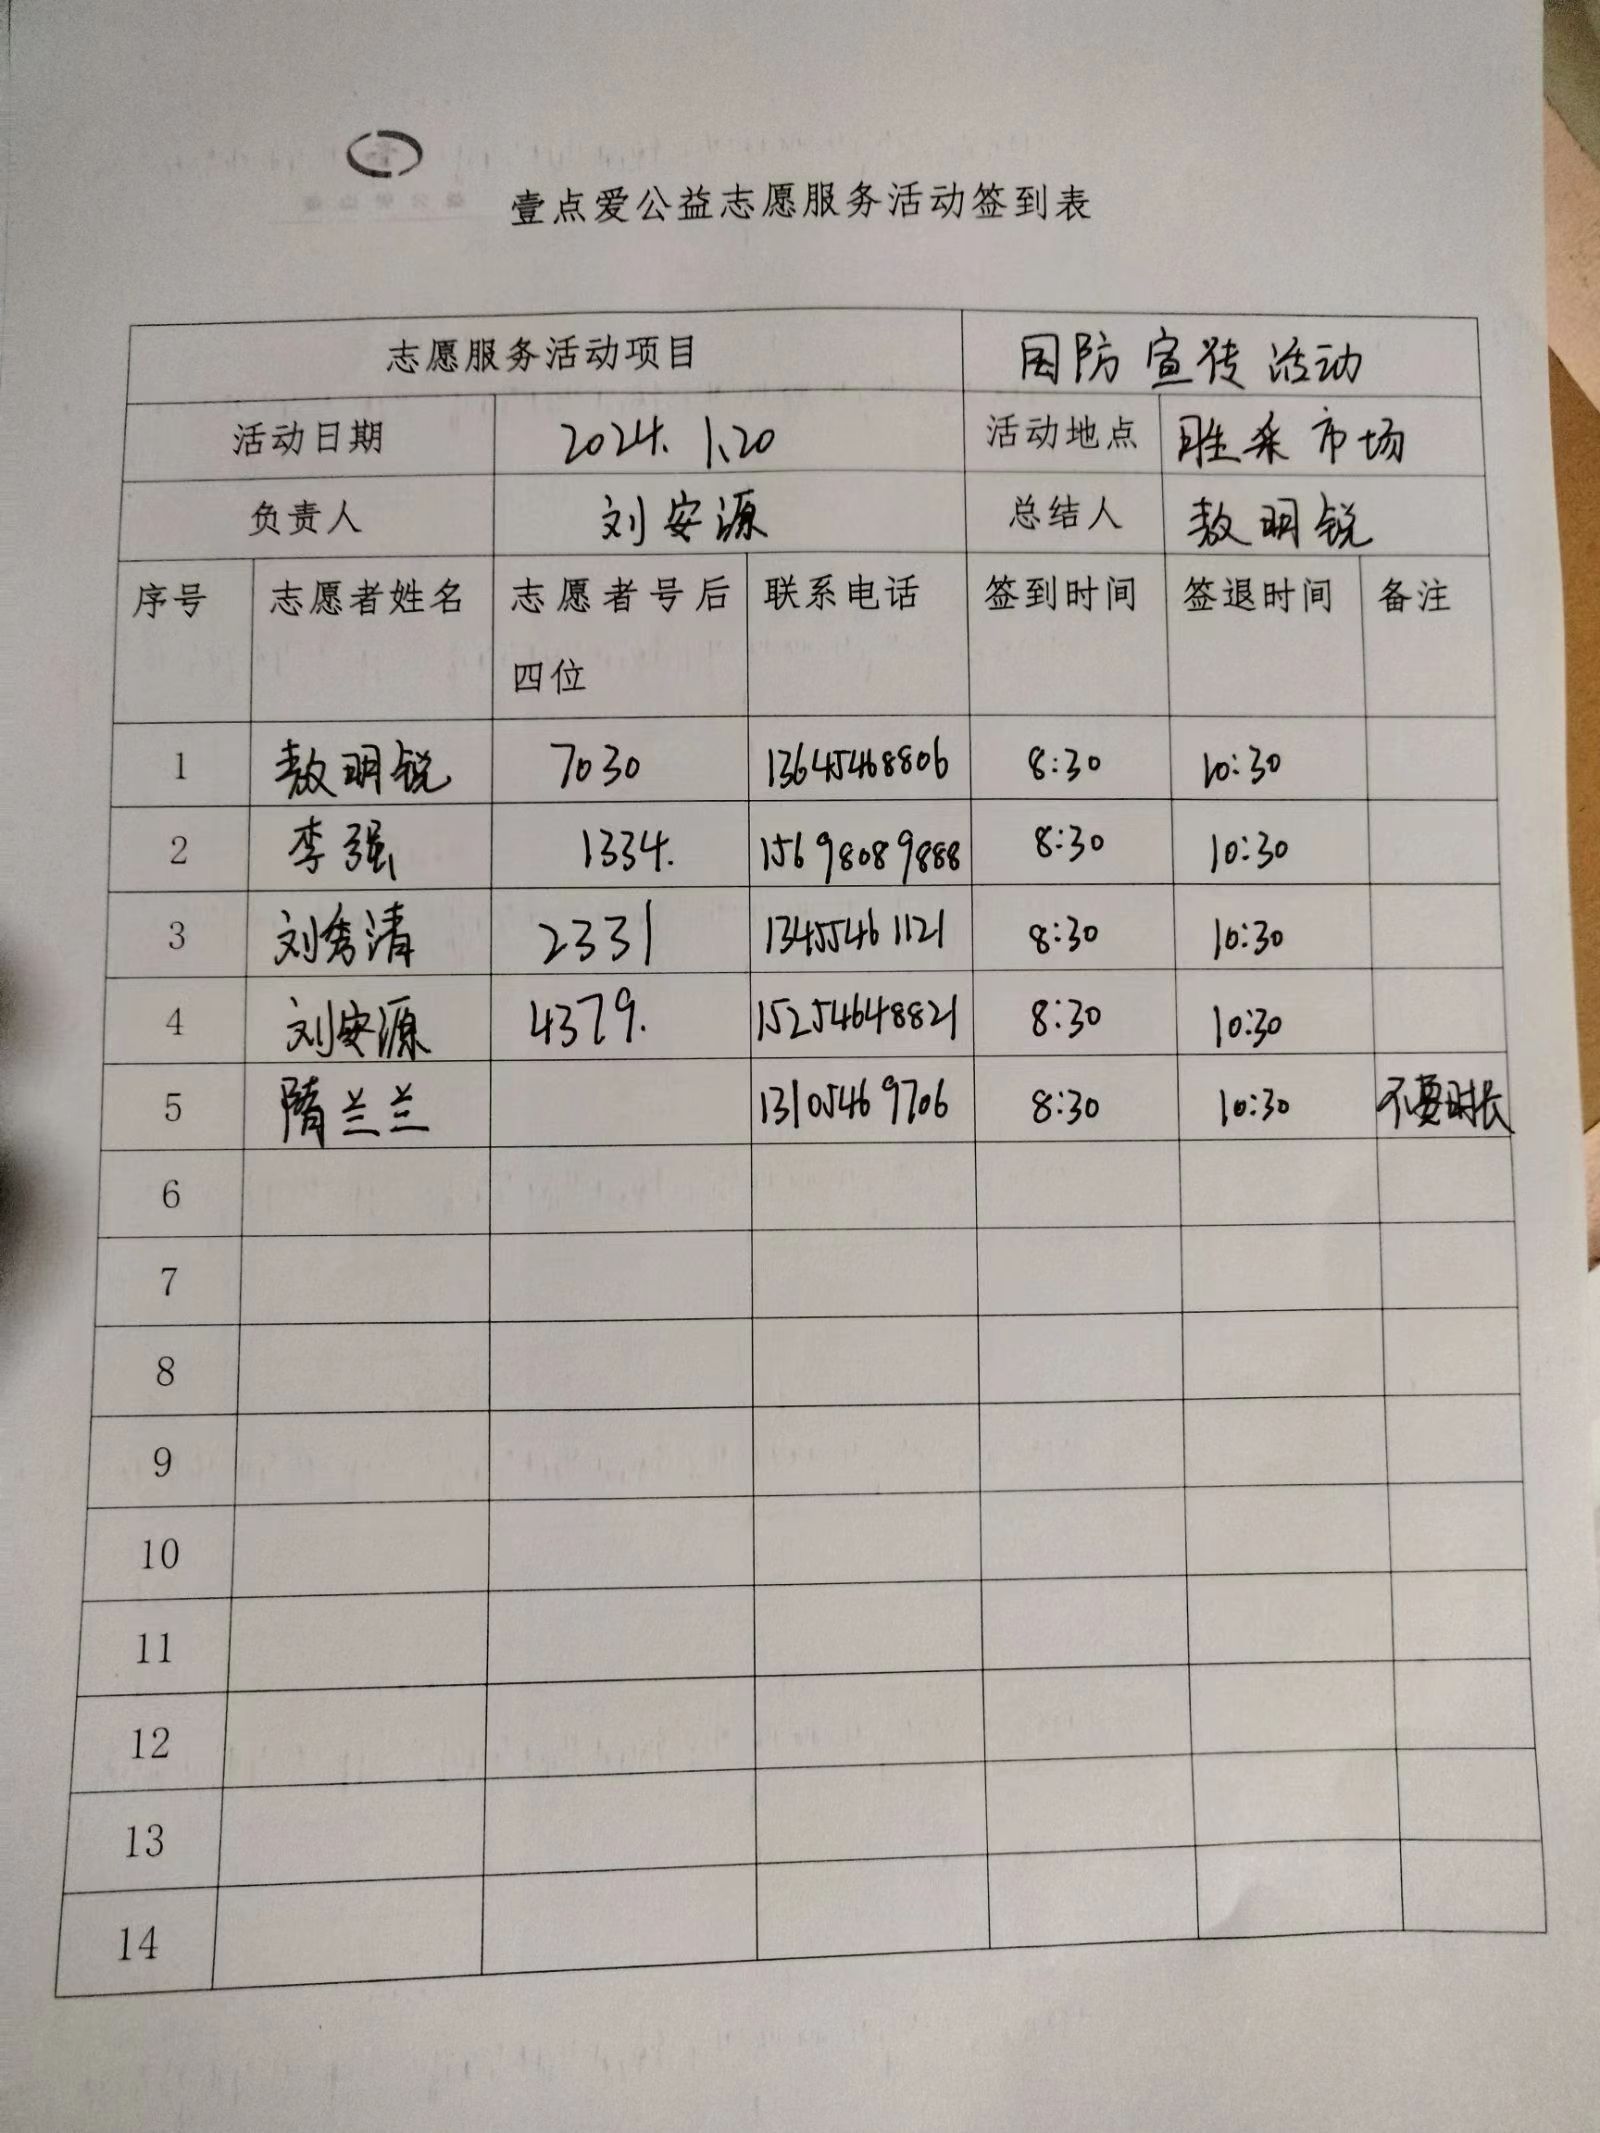 壹点爱公益志愿服务活动签到表
志愿服务活动项目 国防宣传活动
活动日期 2024.1.20 活动地点 胜采市场
负责人 刘安源 总结人 敖明锐
序号 志愿者姓名 志愿者号后四位 联系电话 签到时间 签退时间 备注
1 敖明锐 7030 13645468806 8:30 10:30
2 李强 1334. 15698089888 8:30 10:30
3 刘秀清 2331 13455461121 8:30 10:30
4 刘安源 4379. 15254648821 8:30 10:30
5 隋兰兰 13105469706 8:30 10:30 不要时长
6
7
8
9
10
11
12
13
14